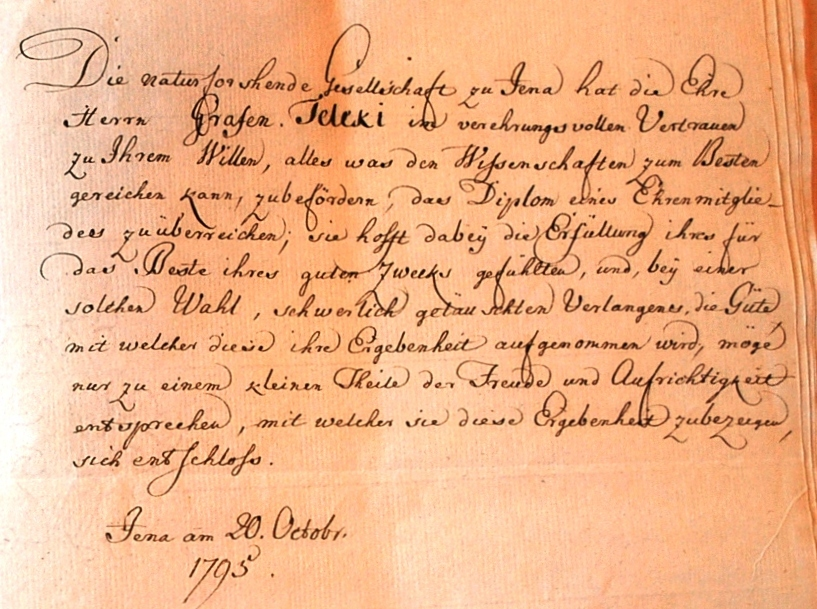 Die naturforshende Gesellschaft zu Jena hat die Ehre
Herrn Grafen. Teleki im verehrungsvollen Vertrauen
zu Ihrem Willen, alles was den Wissenschaften zum Besten
gereichen kann, zubefördern, das Diplom eines Ehrenmitglie-
des zuüberreichen; sie hofft dabeÿ die Erfüllung ihres für
das Beste ihres guten Zweeks gefühlten, und, beÿ einer
solchen Wahl, schwerlich getäuschten Verlangenes, die Güte,
mit welcher diese ihre Ergebenheit aufgenommen wird, möge
nur zu einem kleinen Theile der Freude und Aufrichtigkeit
entsprechen, mit welcher sie diese Ergebenheit zubezeigen,
sich entschloss.
Jena am 20. Octobr.
1795.